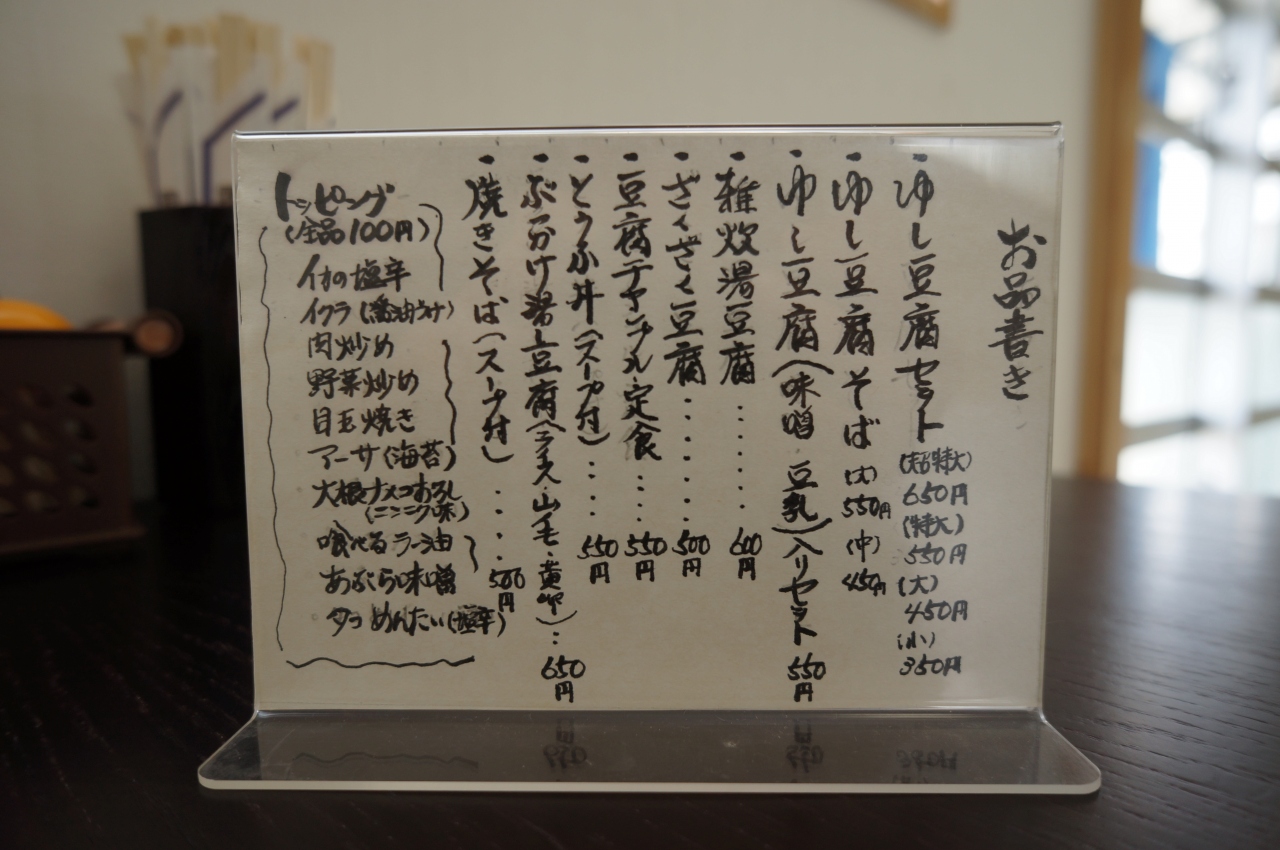 お品書き
・ゆし豆腐セット
(超特大)
650円
(特大)
550円
(大)
450円
(小)
350円
・ゆし豆腐そば
(大)
550円
(中)
450円
・ゆし豆腐(味噌 豆乳)入りセット
550円
・雑炊湯豆腐・・・・・
600円
・ざくざく豆腐・・・・・
500円
・豆腐チャンプル定食・・・
550円
・とうふ丼(スープ付)・・・・
550円
・ぶっかけ湯し豆腐(ライス 山毛・黄卵)・・
650円
・焼きそば(スープ付)・・・・
500円
トッピング
(全品100円)
イカの塩辛
イクラ(醤油づけ)
肉炒め
野菜炒め
目玉焼き
アーサ(海苔)
大根ナメコおろし
(ニンニク味)
喰べるラー油
あぶら味噌
タコめんたい(塩辛)